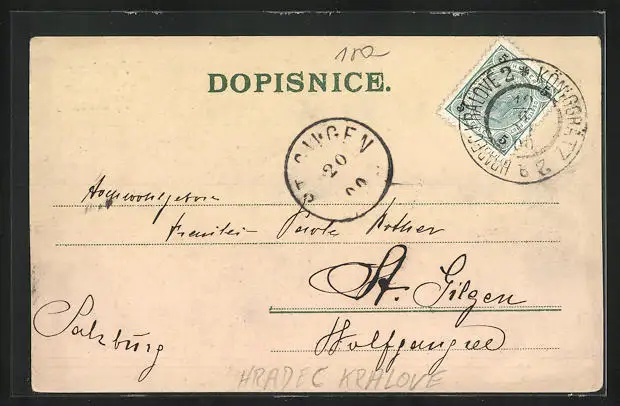 100
DOPISNICE.
5 5
HRADEC KRÁLOVÉ 2 * KÖNIGGRÄTZ 2 a
ST. GILGEN
20
Hochwohlgeboren
Fräulein Rother
St. Gilgen
Salzburg
Wolfgangsee
HRADEC KRALOVE